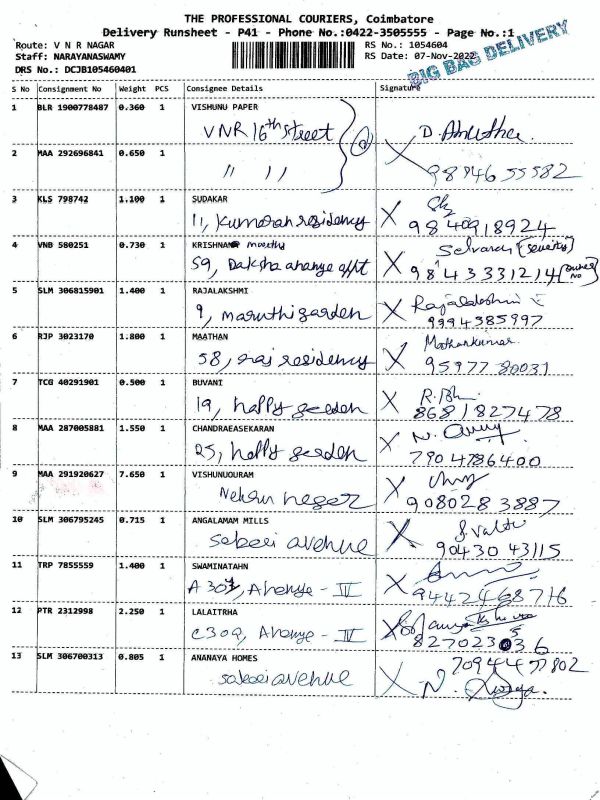 THE PROFESSIONAL COURIERS, Coimbatore
Delivery Runsheet - P41 - Phone No.:0422-3505555 - Page No.:1
Route: V N R NAGAR
RS No.: 1054604
Staff: NARAYANASWAMY
RS Date: 07-Nov-2022
DRS No.: DCJB105460401
BIG BAG DELIVERY
S No Consignment No Weight PCS Consignee Details Signature
1 BLR 1900778487 0.360 1 VISHUNU PAPER
VNR 16th street
2 MAA 292696841 0.650 1
" "
9894655582
3 KLS 798742 1.100 1 SUDAKAR
11, Kumaran residency 9840918924
4 VNB 580251 0.730 1 KRISHNA
59, Daksha ananya appt 9843331214 (owner no
5 SLM 306815901 1.400 1 RAJALAKSHMI
9, maruthi garden 9994385997
6 RJP 3023170 1.800 1 MAATHAN
58, raj residency 9597780031
7 TCG 40291901 0.500 1 BUVANI
19, happy garden 8681827478
8 MAA 287005881 1.550 1 CHANDRAEASEKARAN
25, happy garden 7904786400
9 MAA 291920627 7.650 1 VISHUNUOURAM
Nehru nagar 9080283887
10 SLM 306795245 0.715 1 ANGALAMAM MILLS
sabari avenue 9043043115
11 TRP 7855559 1.400 1 SWAMINATAHN
Ananya - IV 9442468716
12 PTR 2312998 2.250 1 LALAITRHA
C309, Ananya - IV
13 SLM 306700313 0.805 1 ANANAYA HOMES 7094477802
sabari avenue